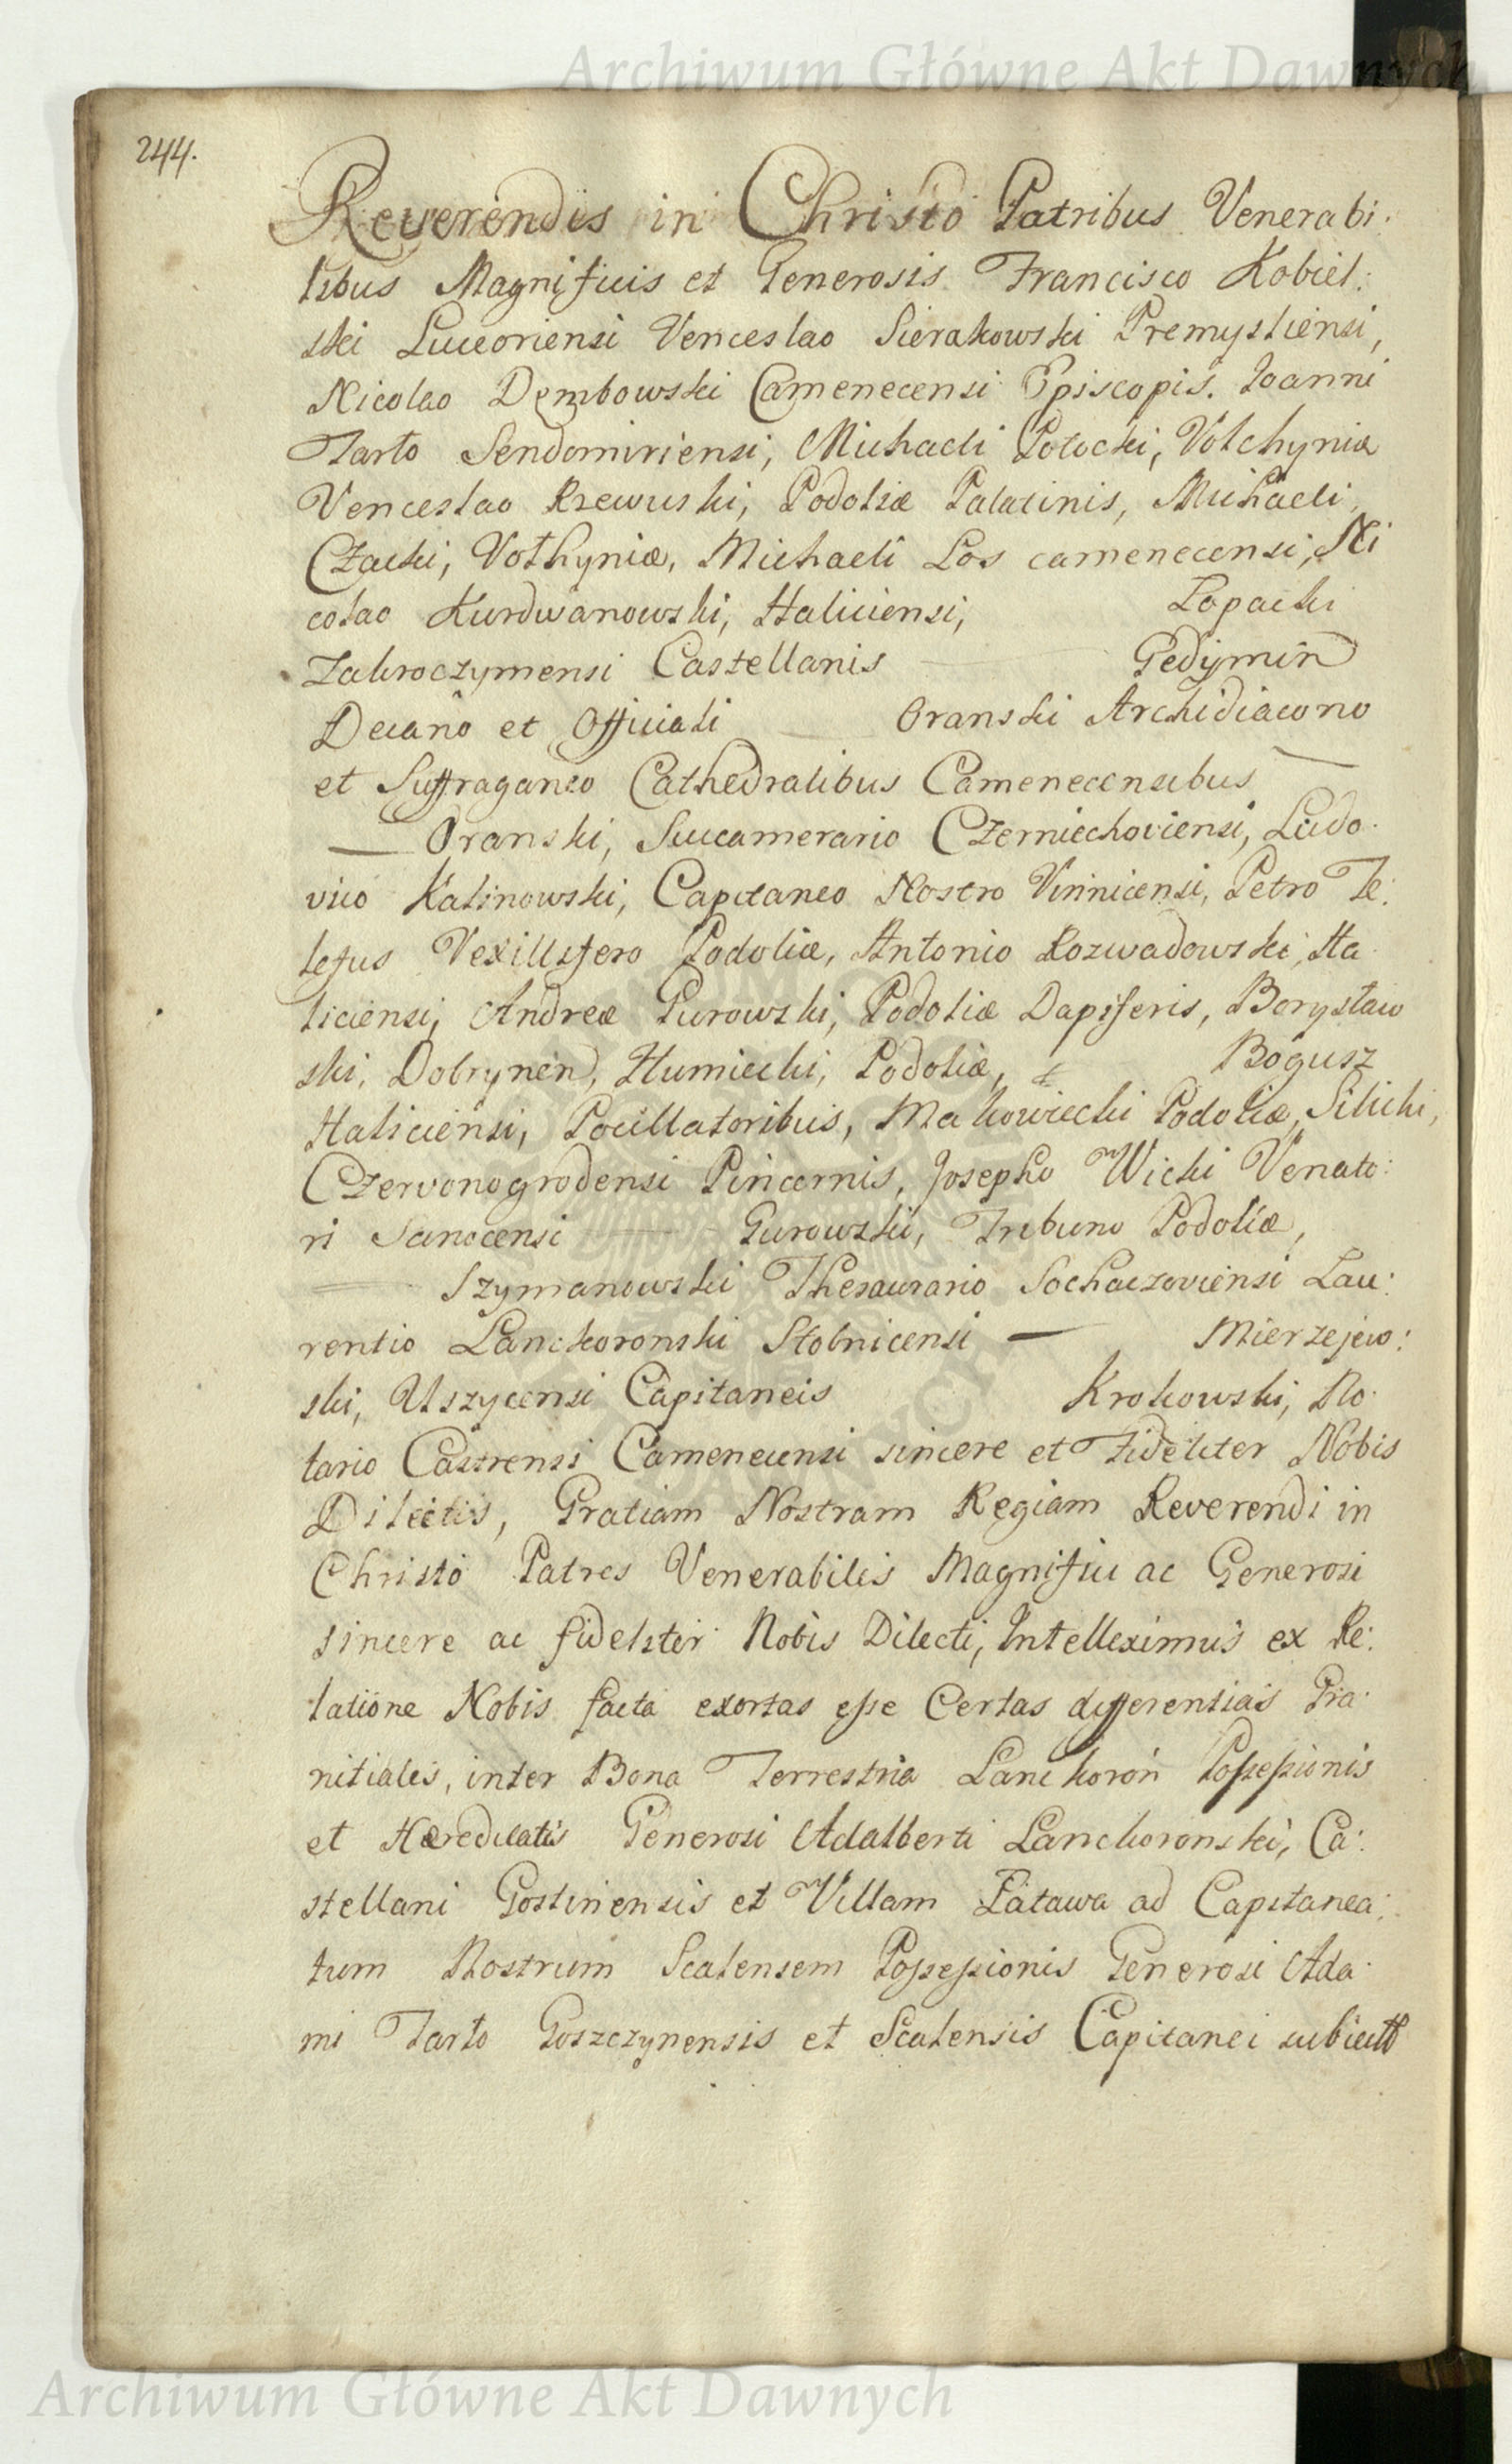 Archiwum Główne Akt Dawnych
244.
Reverendis in Christo Patribus Venerabi:
libus Magnificis et Generosis Francisco Kobiel:
ski Luceoriensi Venceslao Sierakowski Premysliensi,
Nicolao Dembowski Camenecensi Episcopis. Joanni
Tarło Sendomiriensi, Michaeli Potocki, Volchyniæ
Venceslao Rzewuski, Podoliæ Palatinis, Michaeli,
Czacki, Volhyniæ, Michaeli Łos camenecensi, Ni
colao Kurdwanowski, Haliciensi, Łopacki
Zakroczymensi Castellanis Gedymin
Decano et Officiali Oranski Archidiacono
et Suffraganeo Cathedralibus Camenecensibus
— Oranski, Succamerario Czerniechoviensi, Ludo:
vico Kalinowski, Capitaneo Nostro Vinnicensi, Petro Te:
lefus Vexillifero Podoliæ, Antonio Rozwadowski, Ha
liciensi, Andreæ Gurowski, Podoliæ Dapiferis, Borysław
ski, Dobrynen, Humiecki, Podoliæ, & Bogusz
Haliciensi, Pocillatoribus, Makowiecki Podoliæ, Silicki,
Czervonogrodensi Pincernis, Josepho Wicki Venato:
ri Sanocensi — Gurowski, Tribuno Podoliæ,
— Szymanowski Thesaurario Sochaczoviensi Lau:
rentio Lanckoronski Stobnicensi — Mierzejew:
ski, Uszycensi Capitaneis Krokowski, No:
tario Castrensi Camenecensi sincere et Fideliter Nobis
Dilectis, Gratiam Nostram Regiam Reverendi in
Christo Patres Venerabiles Magnifici ac Generosi
sincere ac fideliter Nobis Dilecti, Intelleximus ex Re:
latione Nobis facta exortas esse Certas differentias Gra:
nitiales, inter Bona Terrestria Lanckoroń Possessionis
et Hæreditatis Generosi Adalberti Lanckoronski, Ca:
stellani Gostinensis et Villam Łatawa ad Capitanea:
tum Nostrum Scalensem Possessionis Generosi Ada:
mi Tarło Goszczynensis et Scalensis Capitanei subiectt
Archiwum Główne Akt Dawnych